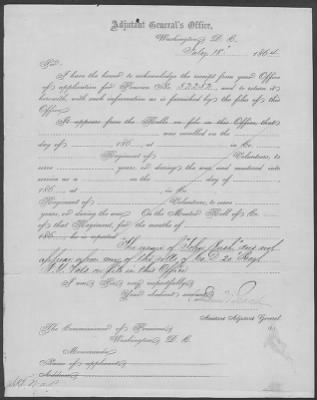 Adjutant General's Office,
Washington, D. C.
July 18th 1864
Sir:
I have the honor to acknowledge the receipt from your Office
of application for Pension No. 52252 and to return it
herewith, with such information as is furnished by the files of this
Office.
It appears from the Rolls on file in this Office, that
was enrolled on the
day of 186 , at in Co.
Regiment of Volunteers, to
serve years, or during the war, and mustered into
service as a on the day of
186 , at in Co.
Regiment of Volunteers, to serve
years, or during the war. On the Muster Roll of Co.
of that Regiment, for the months of
186 , he is reported
The name of "John " does not
appear upon any of the rolls of Co D 20. Regt
Vols on file in this Office
I am, Sir, very respectfully,
Your obedient servant,
Assistant Adjutant General.
The Commissioner of Pensions,
Washington, D. C.
Memoranda:
Name of applicant,
Address,